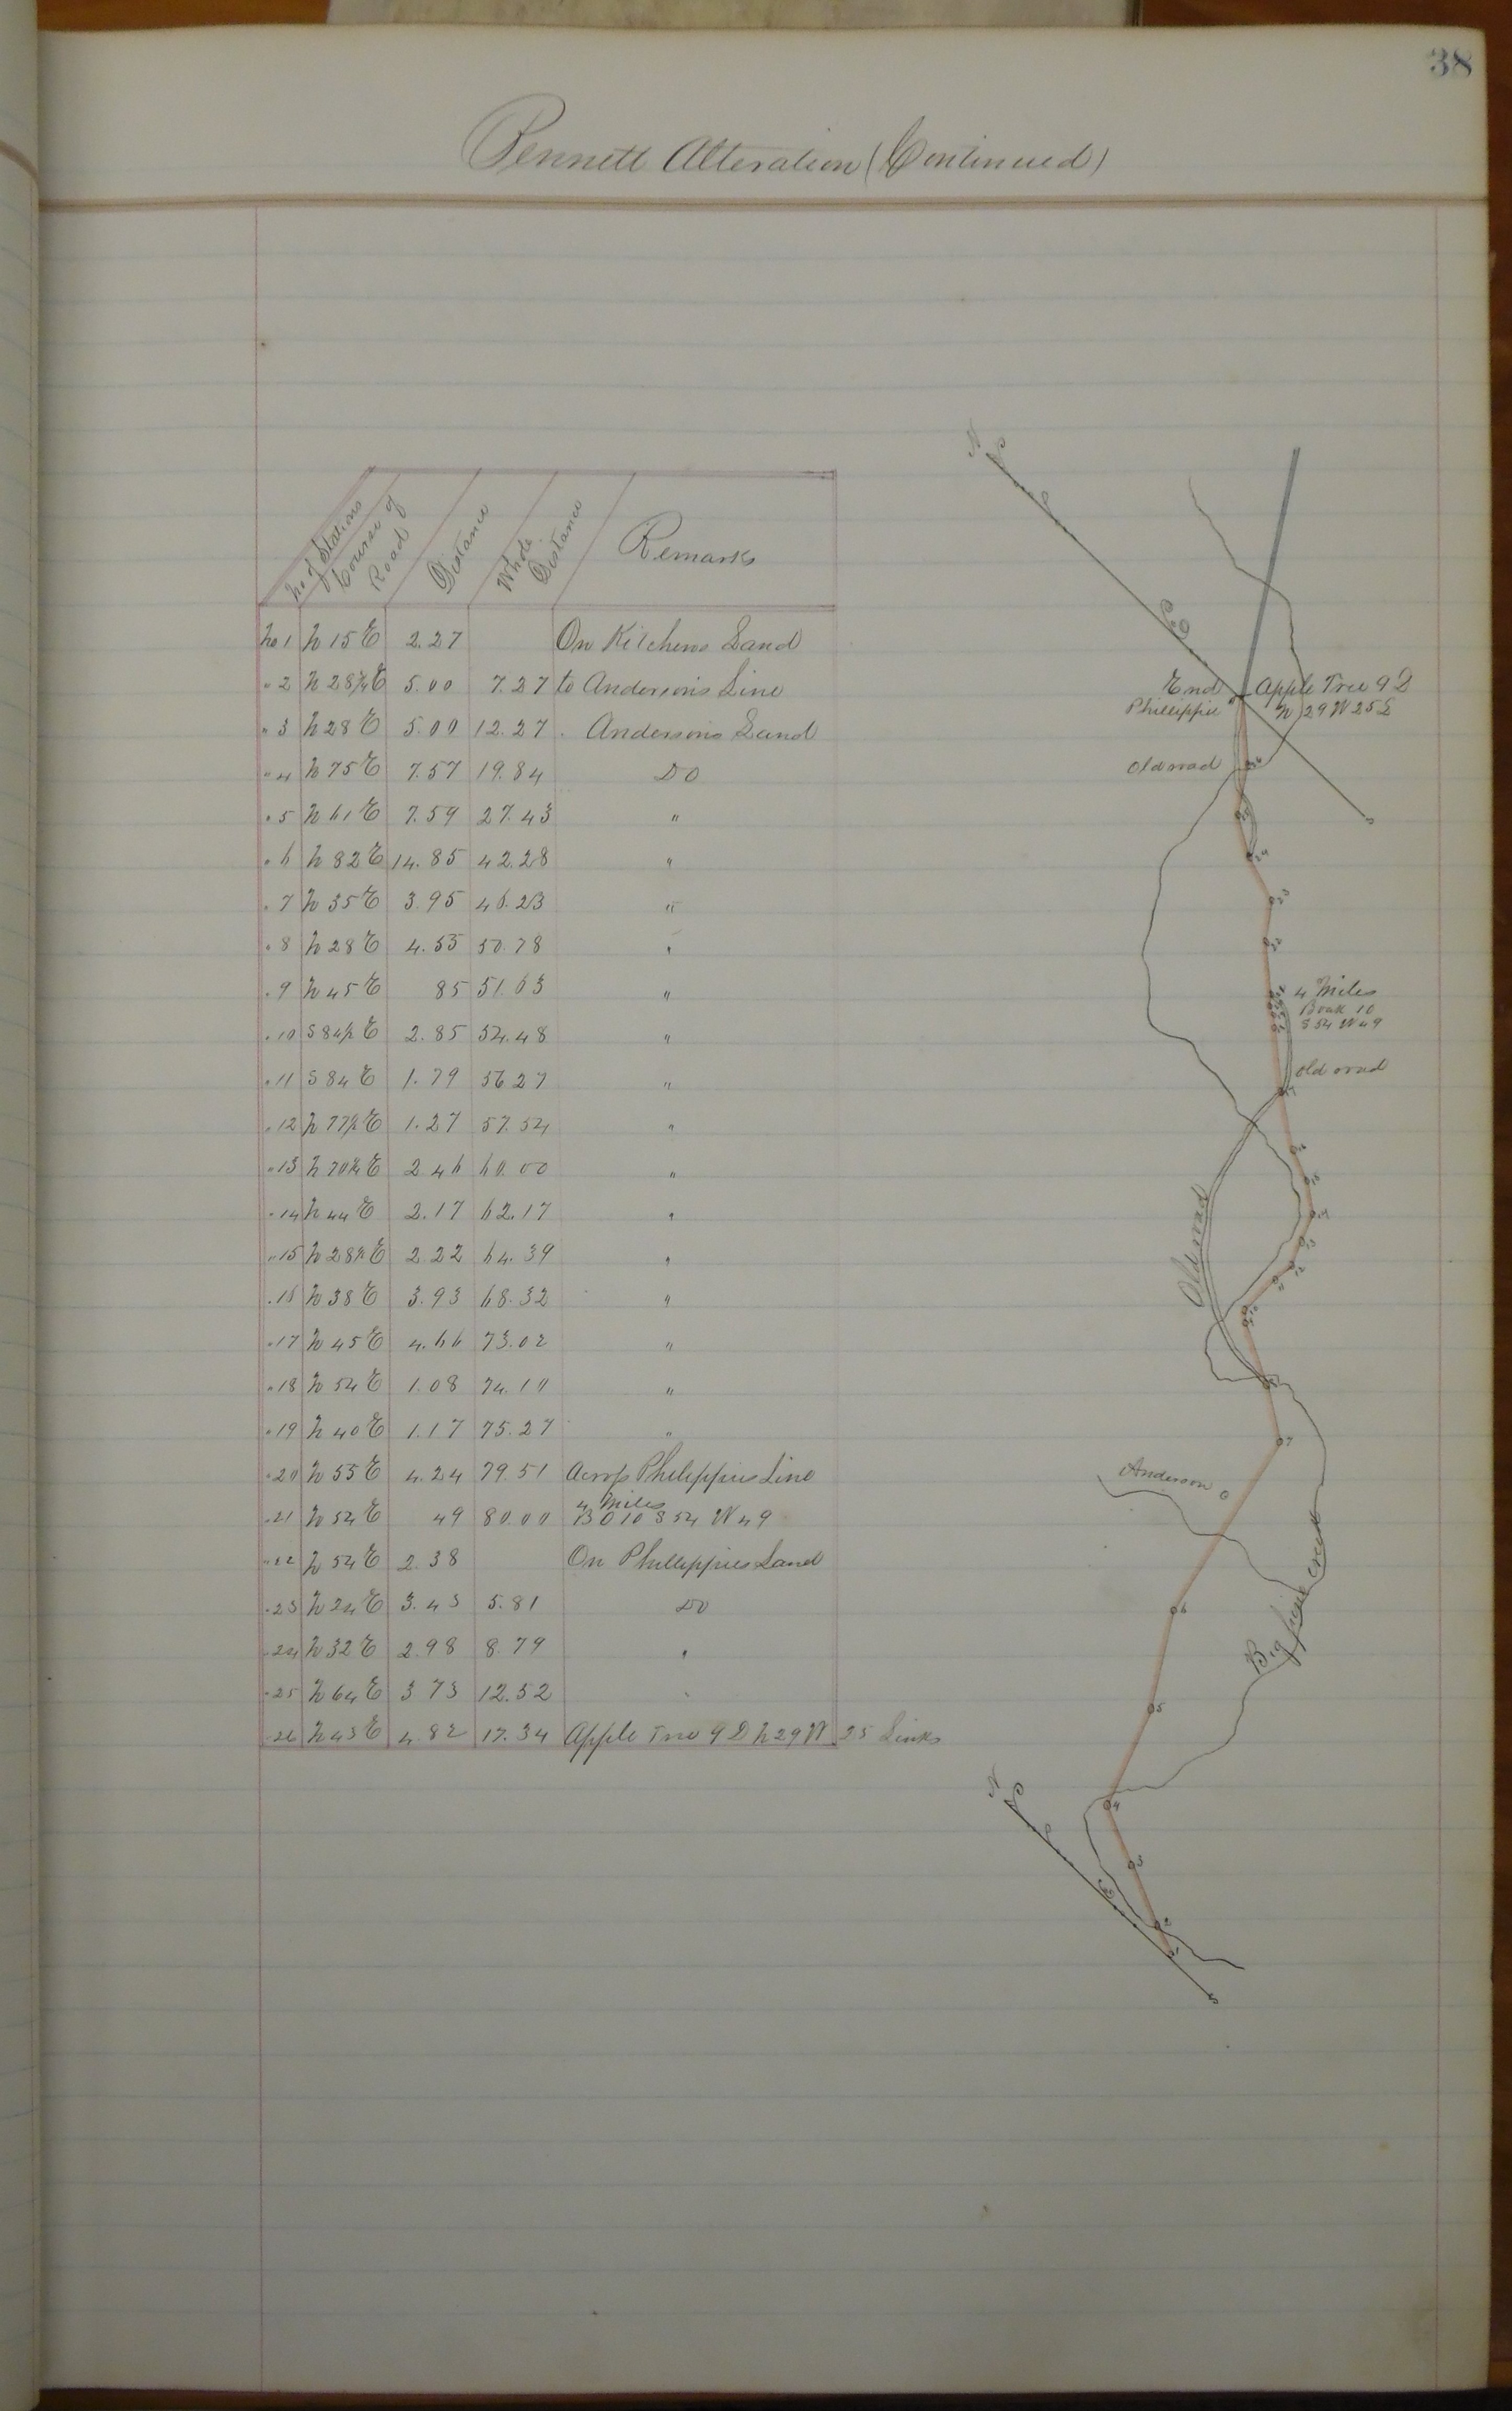 38
Pennett Alteration (Continued)
No of Stations | Course of Road | Distance | Whole Distance | Remarks
No 1 | N 15 E | 2.27 | | On Kitchens Land
" 2 | N 28¾ E | 5.00 | 7.27 | to Andersons Line
" 3 | N 28 E | 5.00 | 12.27 | Andersons Land
" 4 | N 75 E | 7.57 | 19.84 | Do
" 5 | N 61 E | 7.59 | 27.43 | "
" 6 | N 82 E | 14.85 | 42.28 | "
" 7 | N 35 E | 3.95 | 46.23 | "
" 8 | N 28 E | 4.55 | 50.78 | "
" 9 | N 45 E | 85 | 51.63 | "
" 10 | S 84½ E | 2.85 | 54.48 | "
" 11 | S 84 E | 1.79 | 56.27 | "
" 12 | N 77½ E | 1.27 | 57.54 | "
" 13 | N 70¾ E | 2.46 | 60.00 | "
" 14 | N 44 E | 2.17 | 62.17 | "
" 15 | N 28½ E | 2.22 | 64.39 | "
" 16 | N 38 E | 3.93 | 68.32 | "
" 17 | N 45 E | 4.66 | 73.02 | "
" 18 | N 54 E | 1.08 | 74.10 | "
" 19 | N 40 E | 1.17 | 75.27 | "
" 20 | N 55 E | 4.24 | 79.51 | Across Philippies Line
" 21 | N 54 E | 49 | 80.00 | 4 Miles B O 10 S 54 W 49
" 22 | N 54 E | 2.38 | | On Phillippies Land
" 23 | N 24 E | 3.43 | 5.81 | Do
" 24 | N 32 E | 2.98 | 8.79 | "
" 25 | N 64 E | 3.73 | 12.52 | "
" 26 | N 43 E | 4.82 | 17.34 | Apple Tree 9 D N 29 W 25 Links
N
End
Apple Tree 9 D
Phillippie
N 29 W 25 L
Old road
S
4 Miles
B oak 10
S 54 W 49
old road
Old road
7
Anderson
6
Big pine creek
5
4
N
3
2
1
S